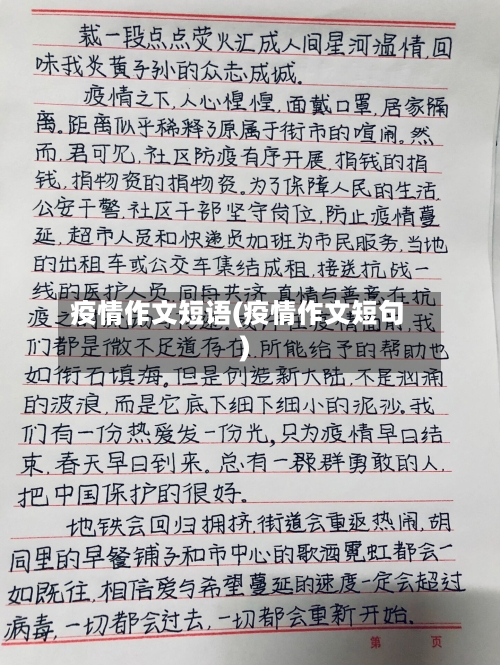 裁一段点点荧火汇成人间星河温情,回
味我炎黄子孙的众志成城。
疫情之下,人心惶惶,面戴口罩,居家隔
离。距离似乎稀释了原属于街市的喧闹。然
而,君可见,社区防疫有序开展,捐钱的捐
钱,捐物资的捐物资。为了保障人民的生活,
公安干警,社区干部坚守岗位,防止疫情蔓
延,超市人员和快递员加班为市民服务,当地
的出租车或公交车集结成租,接送抗战一
线的医护人员,同舟共济,真情与善意在抗
疫之
疫情作文短语(疫情作文短句
)
们都是微不足道存在,所能给予的帮助也
如衔石填海。但是创造新大陆,不是汹涌
的波浪,而是它底下细下细小的泥沙。我
们有一份热爱发一份光,只为疫情早日结
束,春天早日到来。总有一群群勇敢的人,
把中国保护的很好。
地铁会回归拥挤,街道会重返热闹,胡
同里的早餐铺子和市中心的歌酒霓虹都会一
如既往,相信爱与希望蔓延的速度一定会超过
病毒,一切都会过去,一切都会重新开始.
第 页